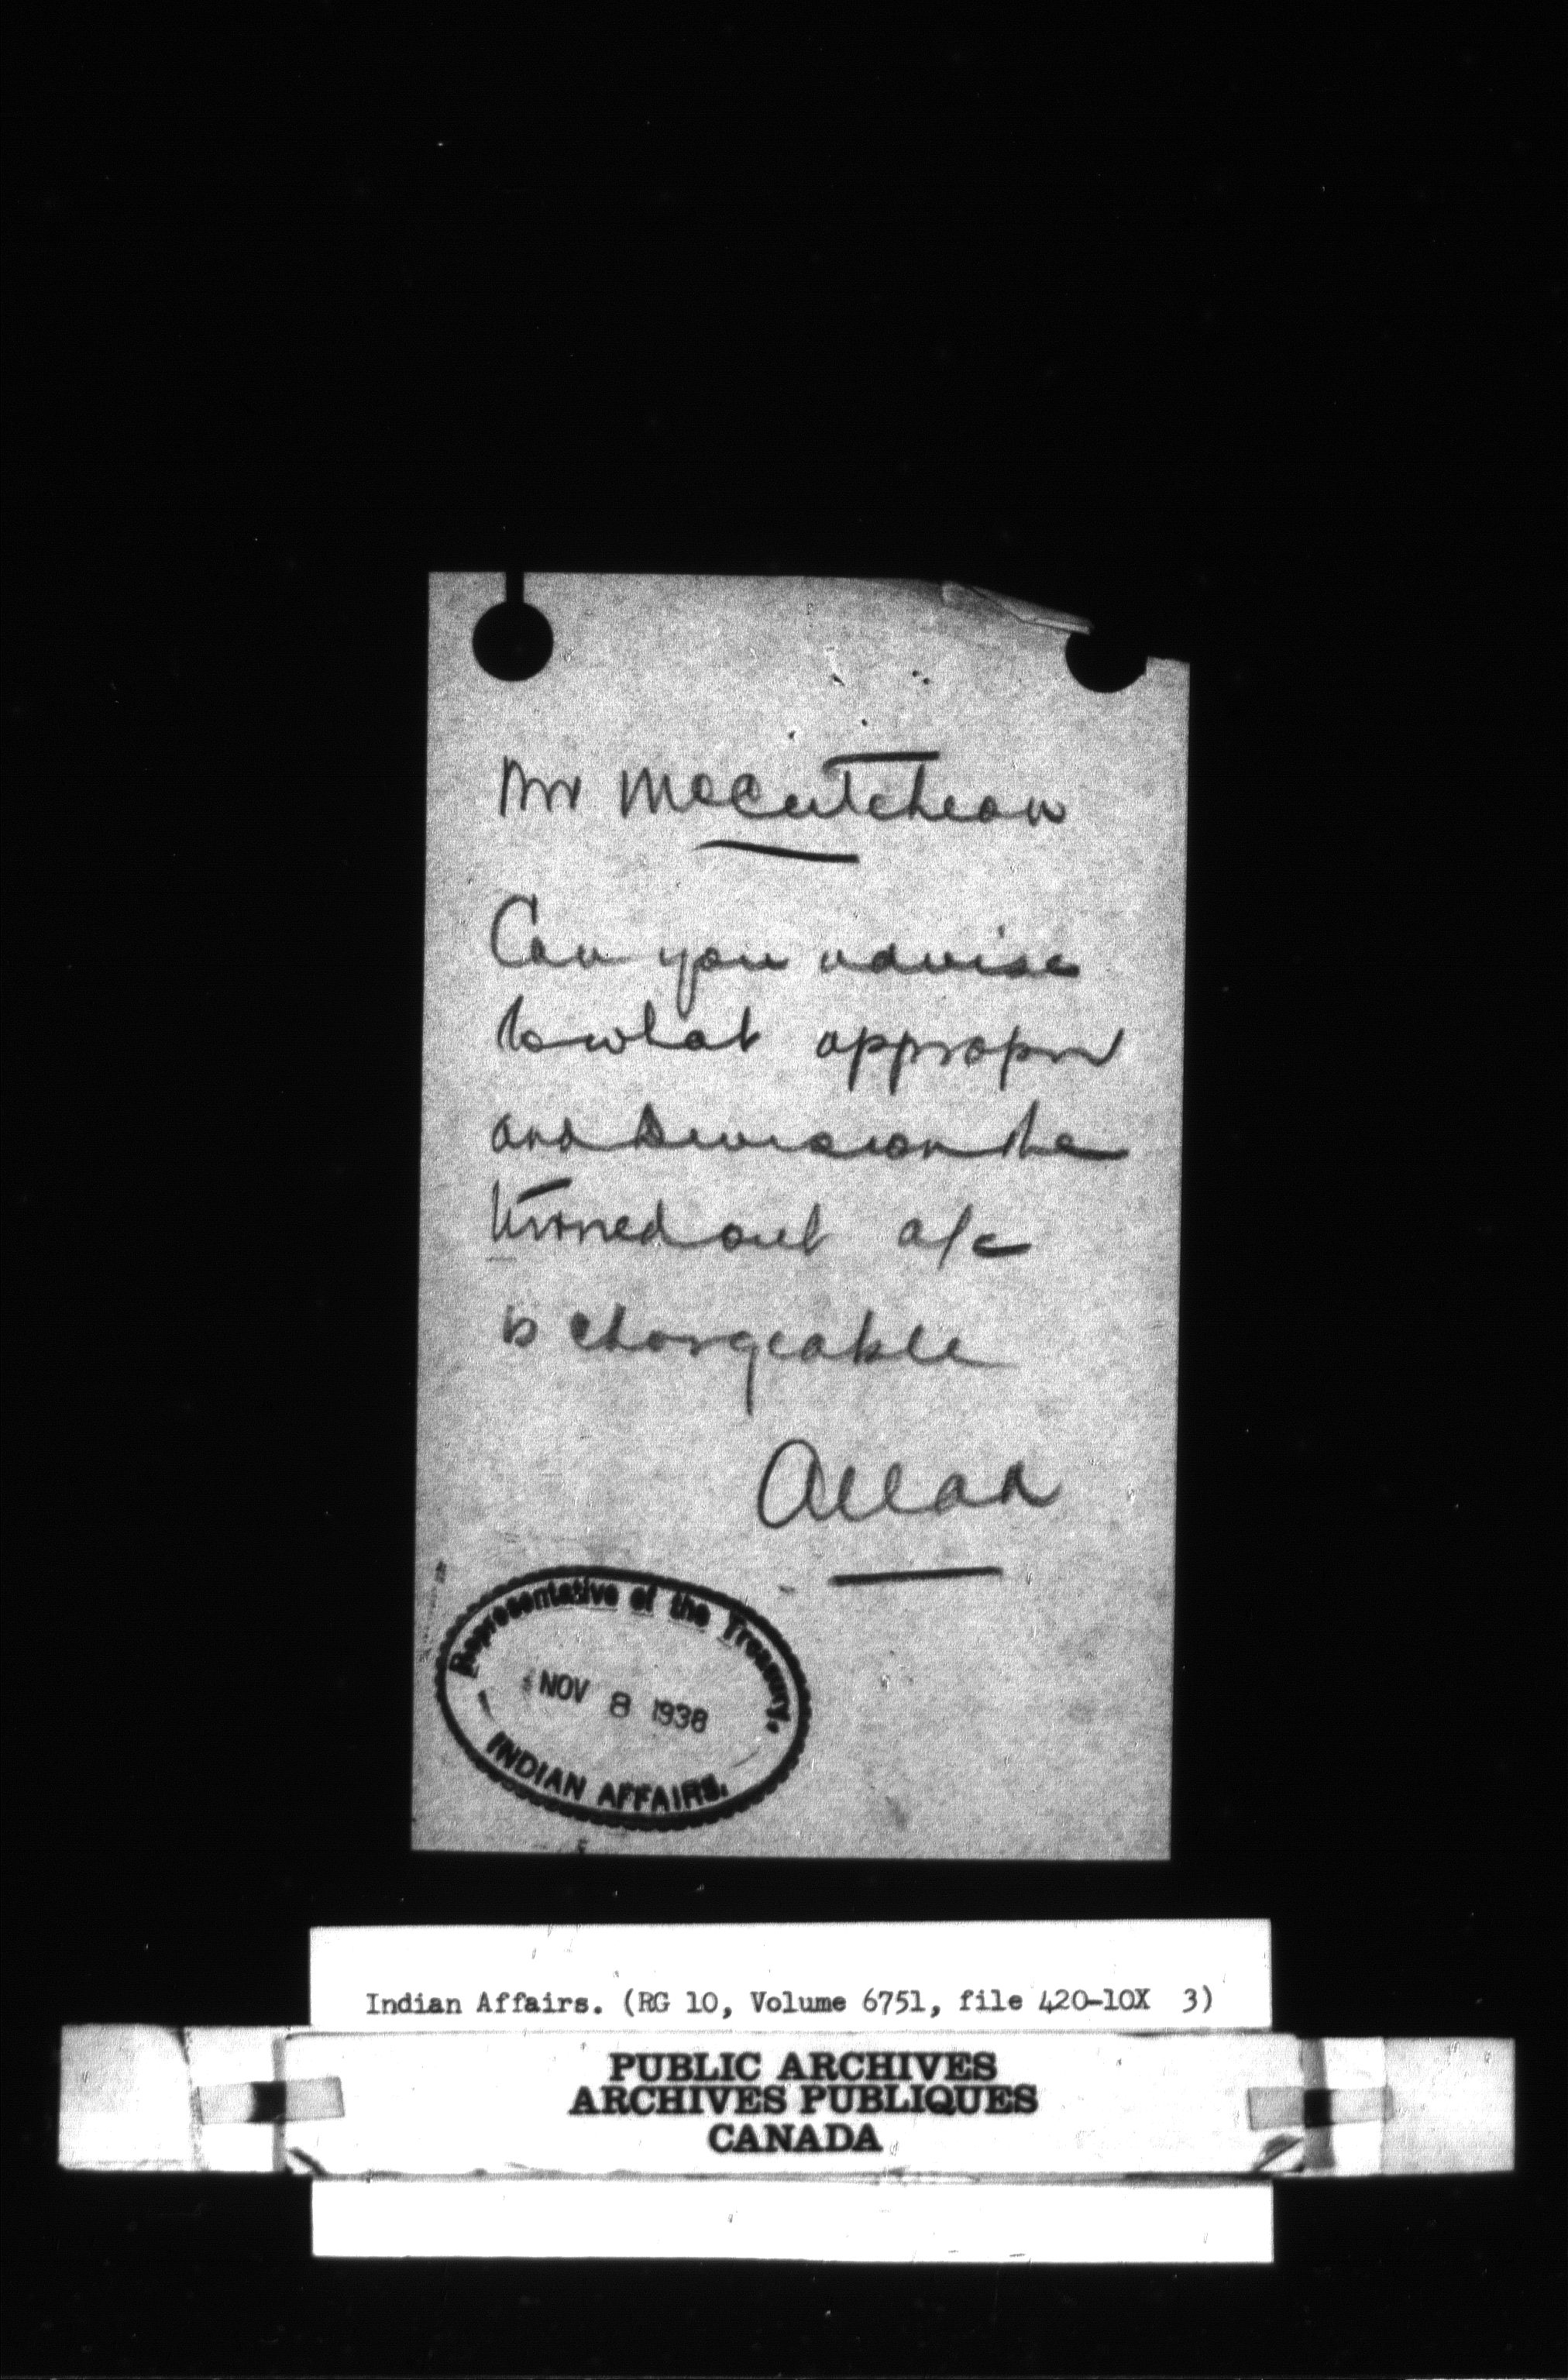 Mr McCutcheon
Can you advise
to what appropn
and Division the
turned out a/c
is chargeable
Allan
Representative of the Treasury.
NOV 8 1938
INDIAN AFFAIRS.
Indian Affairs. (RG 10, Volume 6751, file 420-10X 3)
PUBLIC ARCHIVES
ARCHIVES PUBLIQUES
CANADA